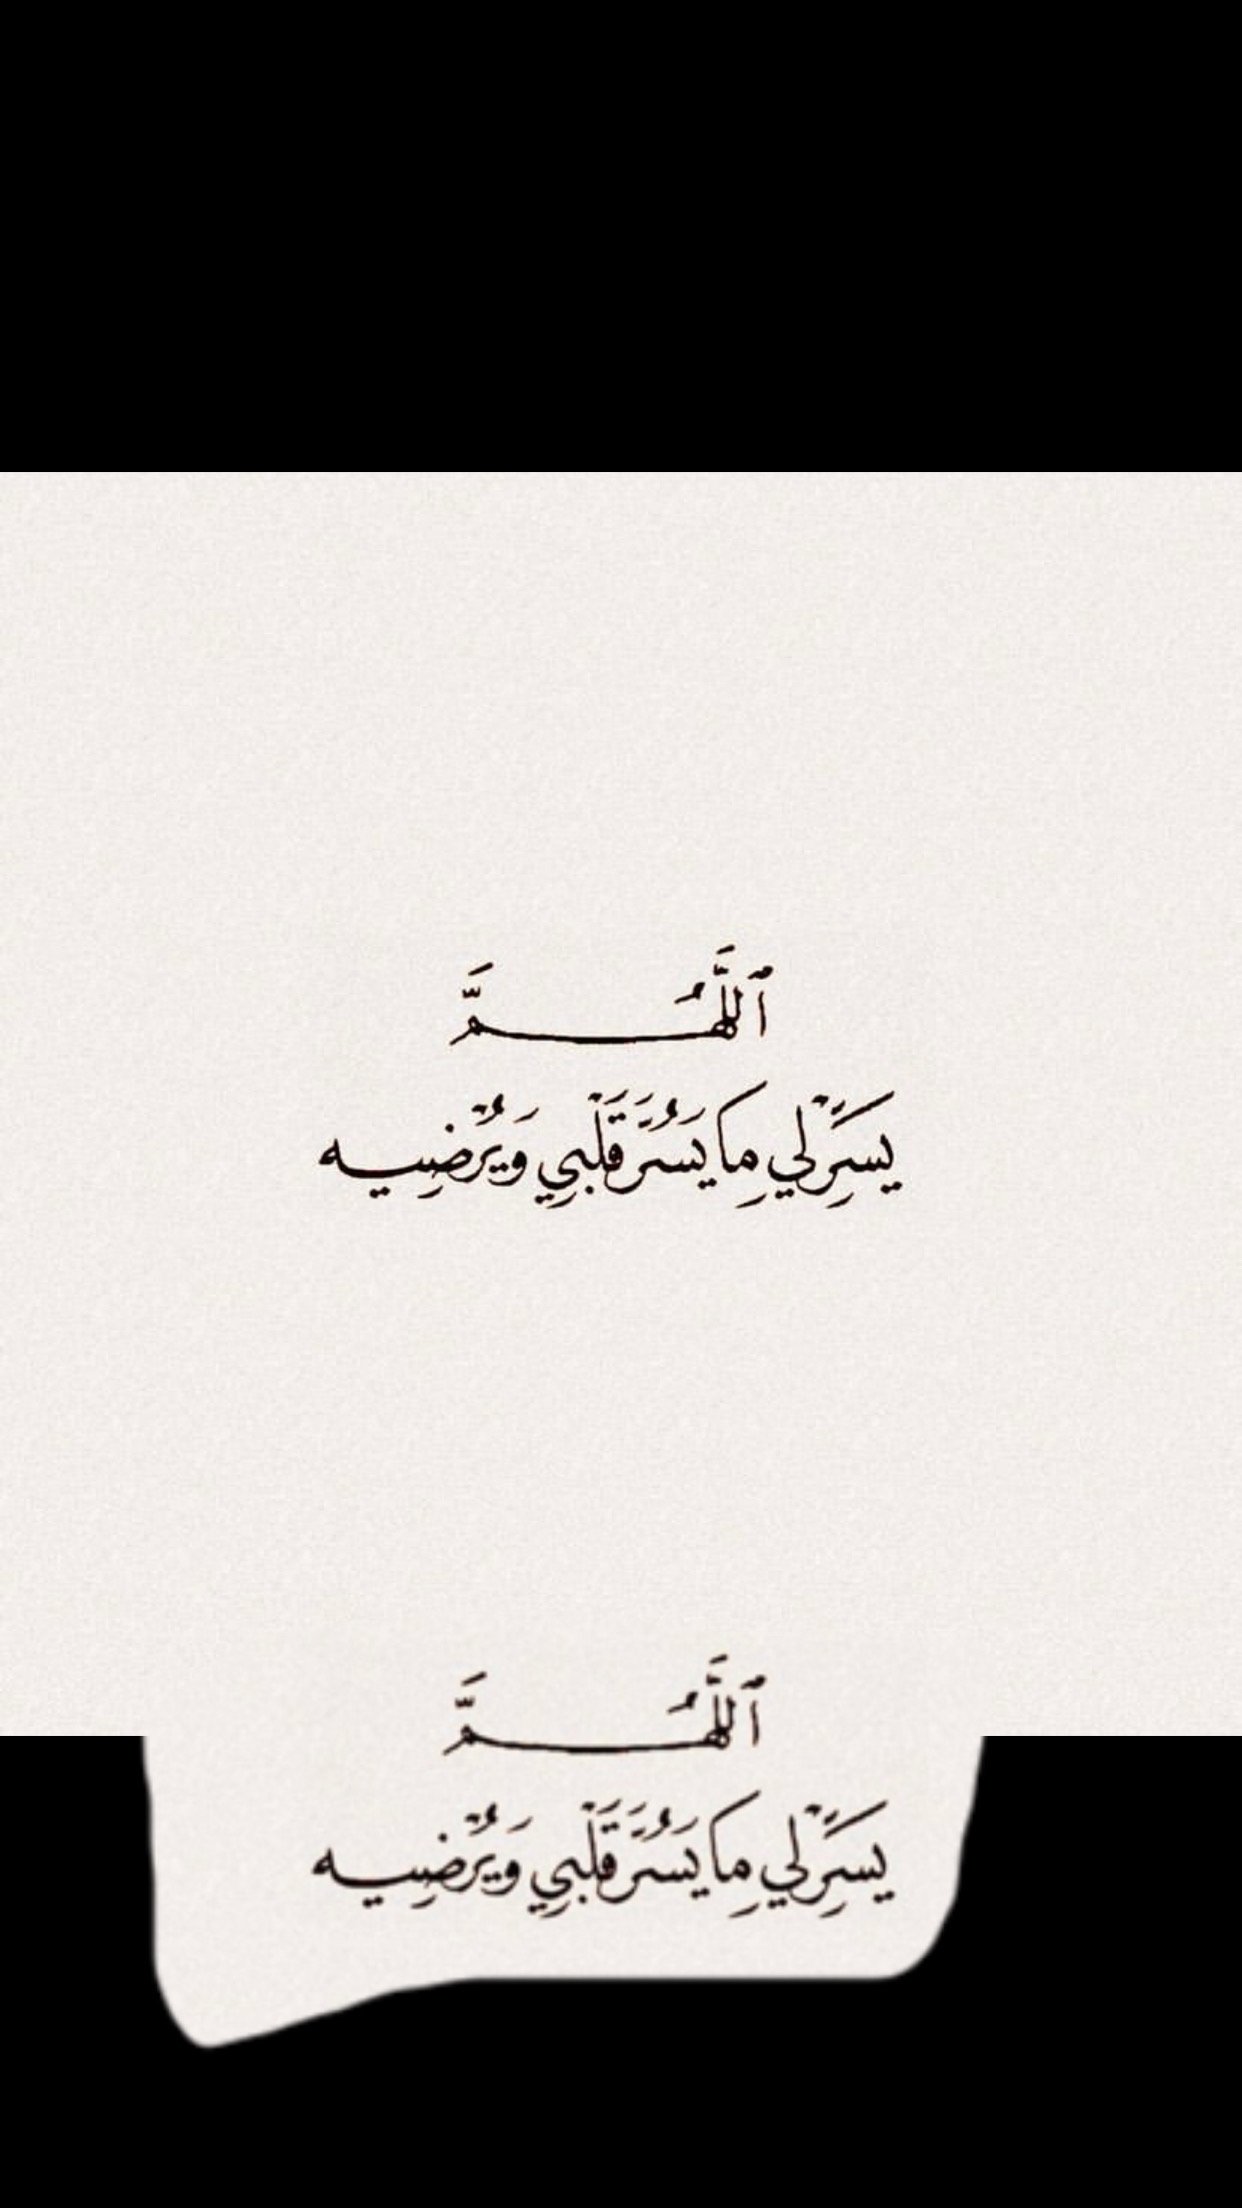 ٱللَّهُمَّ
يَسِّرْ لِي مِا يَسُرَّ قَلْبِي وَيُرْضِيه
ٱللَّهُمَّ
يَسِّرْ لِي مِا يَسُرَّ قَلْبِي وَيُرْضِيه